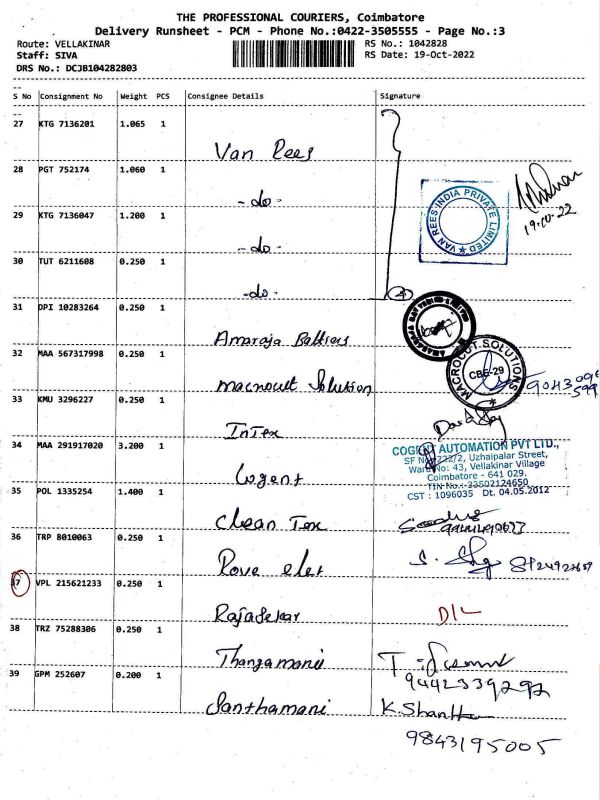 THE PROFESSIONAL COURIERS, Coimbatore
Delivery Runsheet - PCM - Phone No.:0422-3505555 - Page No.:3
Route: VELLAKINAR RS No.: 1042828
Staff: SIVA RS Date: 19-Oct-2022
DRS No.: DCJB104282803
S No Consignment No Weight PCS Consignee Details Signature
27 KTG 7136201 1.065 1
Van Rees
28 PGT 752174 1.060 1
- do -
VAN REES INDIA PRIVATE LIMITED
19.10.22
29 KTG 7136047 1.200 1
- do -
30 TUT 6211608 0.250 1
- do -
4
31 DPI 10283264 0.250 1
Amaraja
32 MAA 567317998 0.250 1
Solution
MACROCUT SOLUTIONS
CBE-29
33 KMU 3296227 0.250 1
InTex
34 MAA 291917020 3.200 1
Cogent
COGENT AUTOMATION PVT LTD.,
SF No. 222/2, Uzhaipalar Street,
Ward No: 43, Vellakinar Village
Coimbatore - 641 029.
TIN No.: 33502124650
CST : 1096035 Dt. 04.05.2012
35 POL 1335254 1.400 1
Clean Tex
36 TRP 8010063 0.250 1
Rove
37 VPL 215621233 0.250 1
Rajasekar D/L
38 TRZ 75288306 0.250 1
Thangamani
9442339292
39 GPM 252607 0.200 1
Santhamani K. Shantha
9843195005